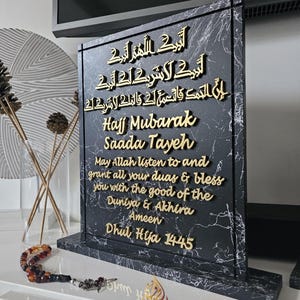 لبيك اللهم لبيك
لبيك لا شريك لك لبيك
إن الحمد والنعمة لك والملك لا شريك لك
Hajj Mubarak
Saada Tayeh
May Allah listen to and
grant all your duas & bless
you with the good of the
Duniya & Akhira
Ameen
Dhul, Hija 1445